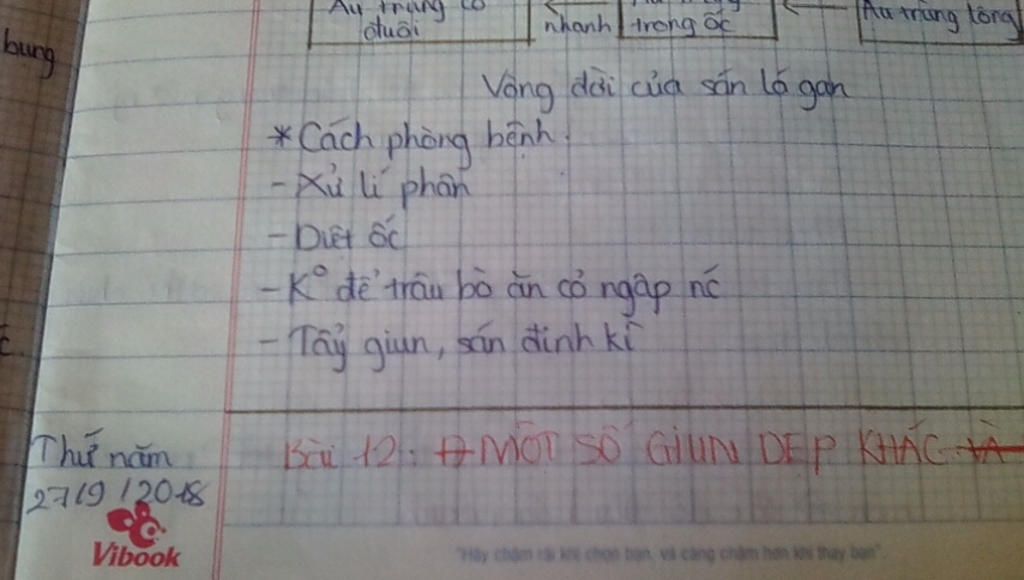 Ấu trùng có
đuôi
nhanh
trong ốc
Ấu trùng lông
bung
Vòng đời của sán lá gan
* Cách phòng bệnh.
- Xử lí phân
- Diệt ốc
- K° để trâu bò ăn cỏ ngập nć
- Tẩy giun, sán định kì
Thứ năm
27/9/2018
Bài 12: MỘT SỐ GIUN DẸP KHÁC VÀ
Vibook
"Hãy chậm rãi khi chọn bạn, và càng chậm hơn khi thay bạn".